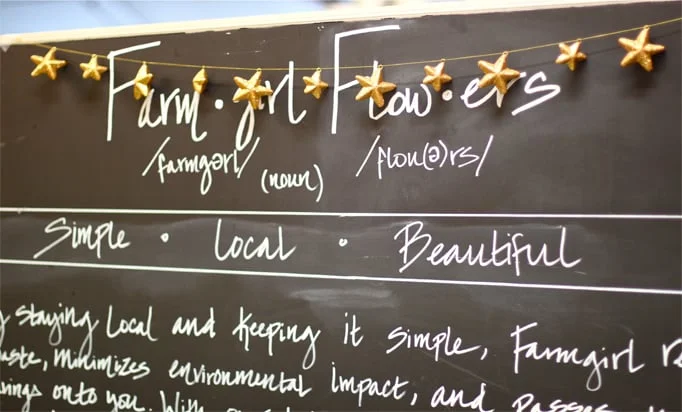 Farm·girl Flow·ers
/farmgərl/ (noun) /flou(ə)rs/
Simple · Local · Beautiful
staying local and keeping it simple, Farmgirl
minimizes environmental impact, and passes
onto you. With